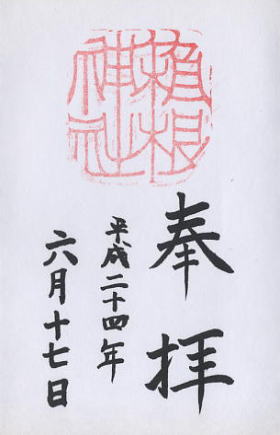 奉拝
根
神社
平成二十四年
六月十七日